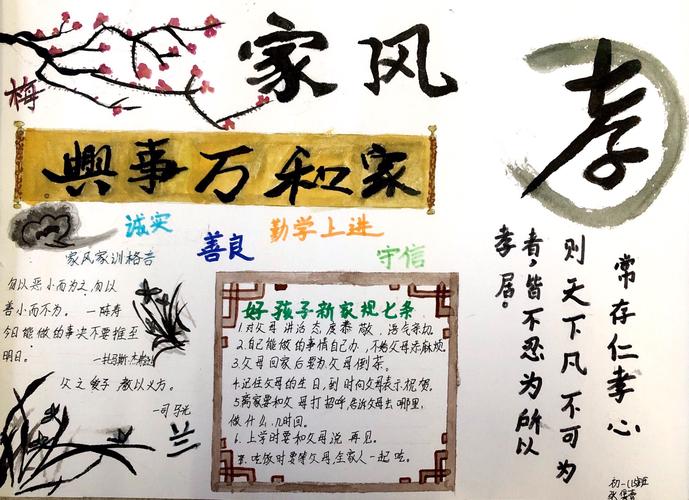 家风
梅
興事万和家
孝
诚实
善良
勤学上进
守信
家风家训格言
勿以恶小而为之，勿以
善小而不为。 —陈寿
今日能做的事决不要推至
明日。 —托马斯·杰弗逊
父之爱子 教以义方。
—司马光
兰
好孩子新家规七条
1.对父母讲话态度恭敬，语气亲切。
2.自己能做的事情自己办，不给父母添麻烦
3.父母回家后要为父母倒茶。
4.记住父母的生日，到时向父母表示祝贺。
5离家要和父母打招呼，告诉父母去哪里，
做什么，几时回。
6.上学时要和父母说再见。
7.吃饭时要等父母，全家人一起吃。
常存仁孝心
则天下凡不可为
者，皆不忍为所以
孝居。